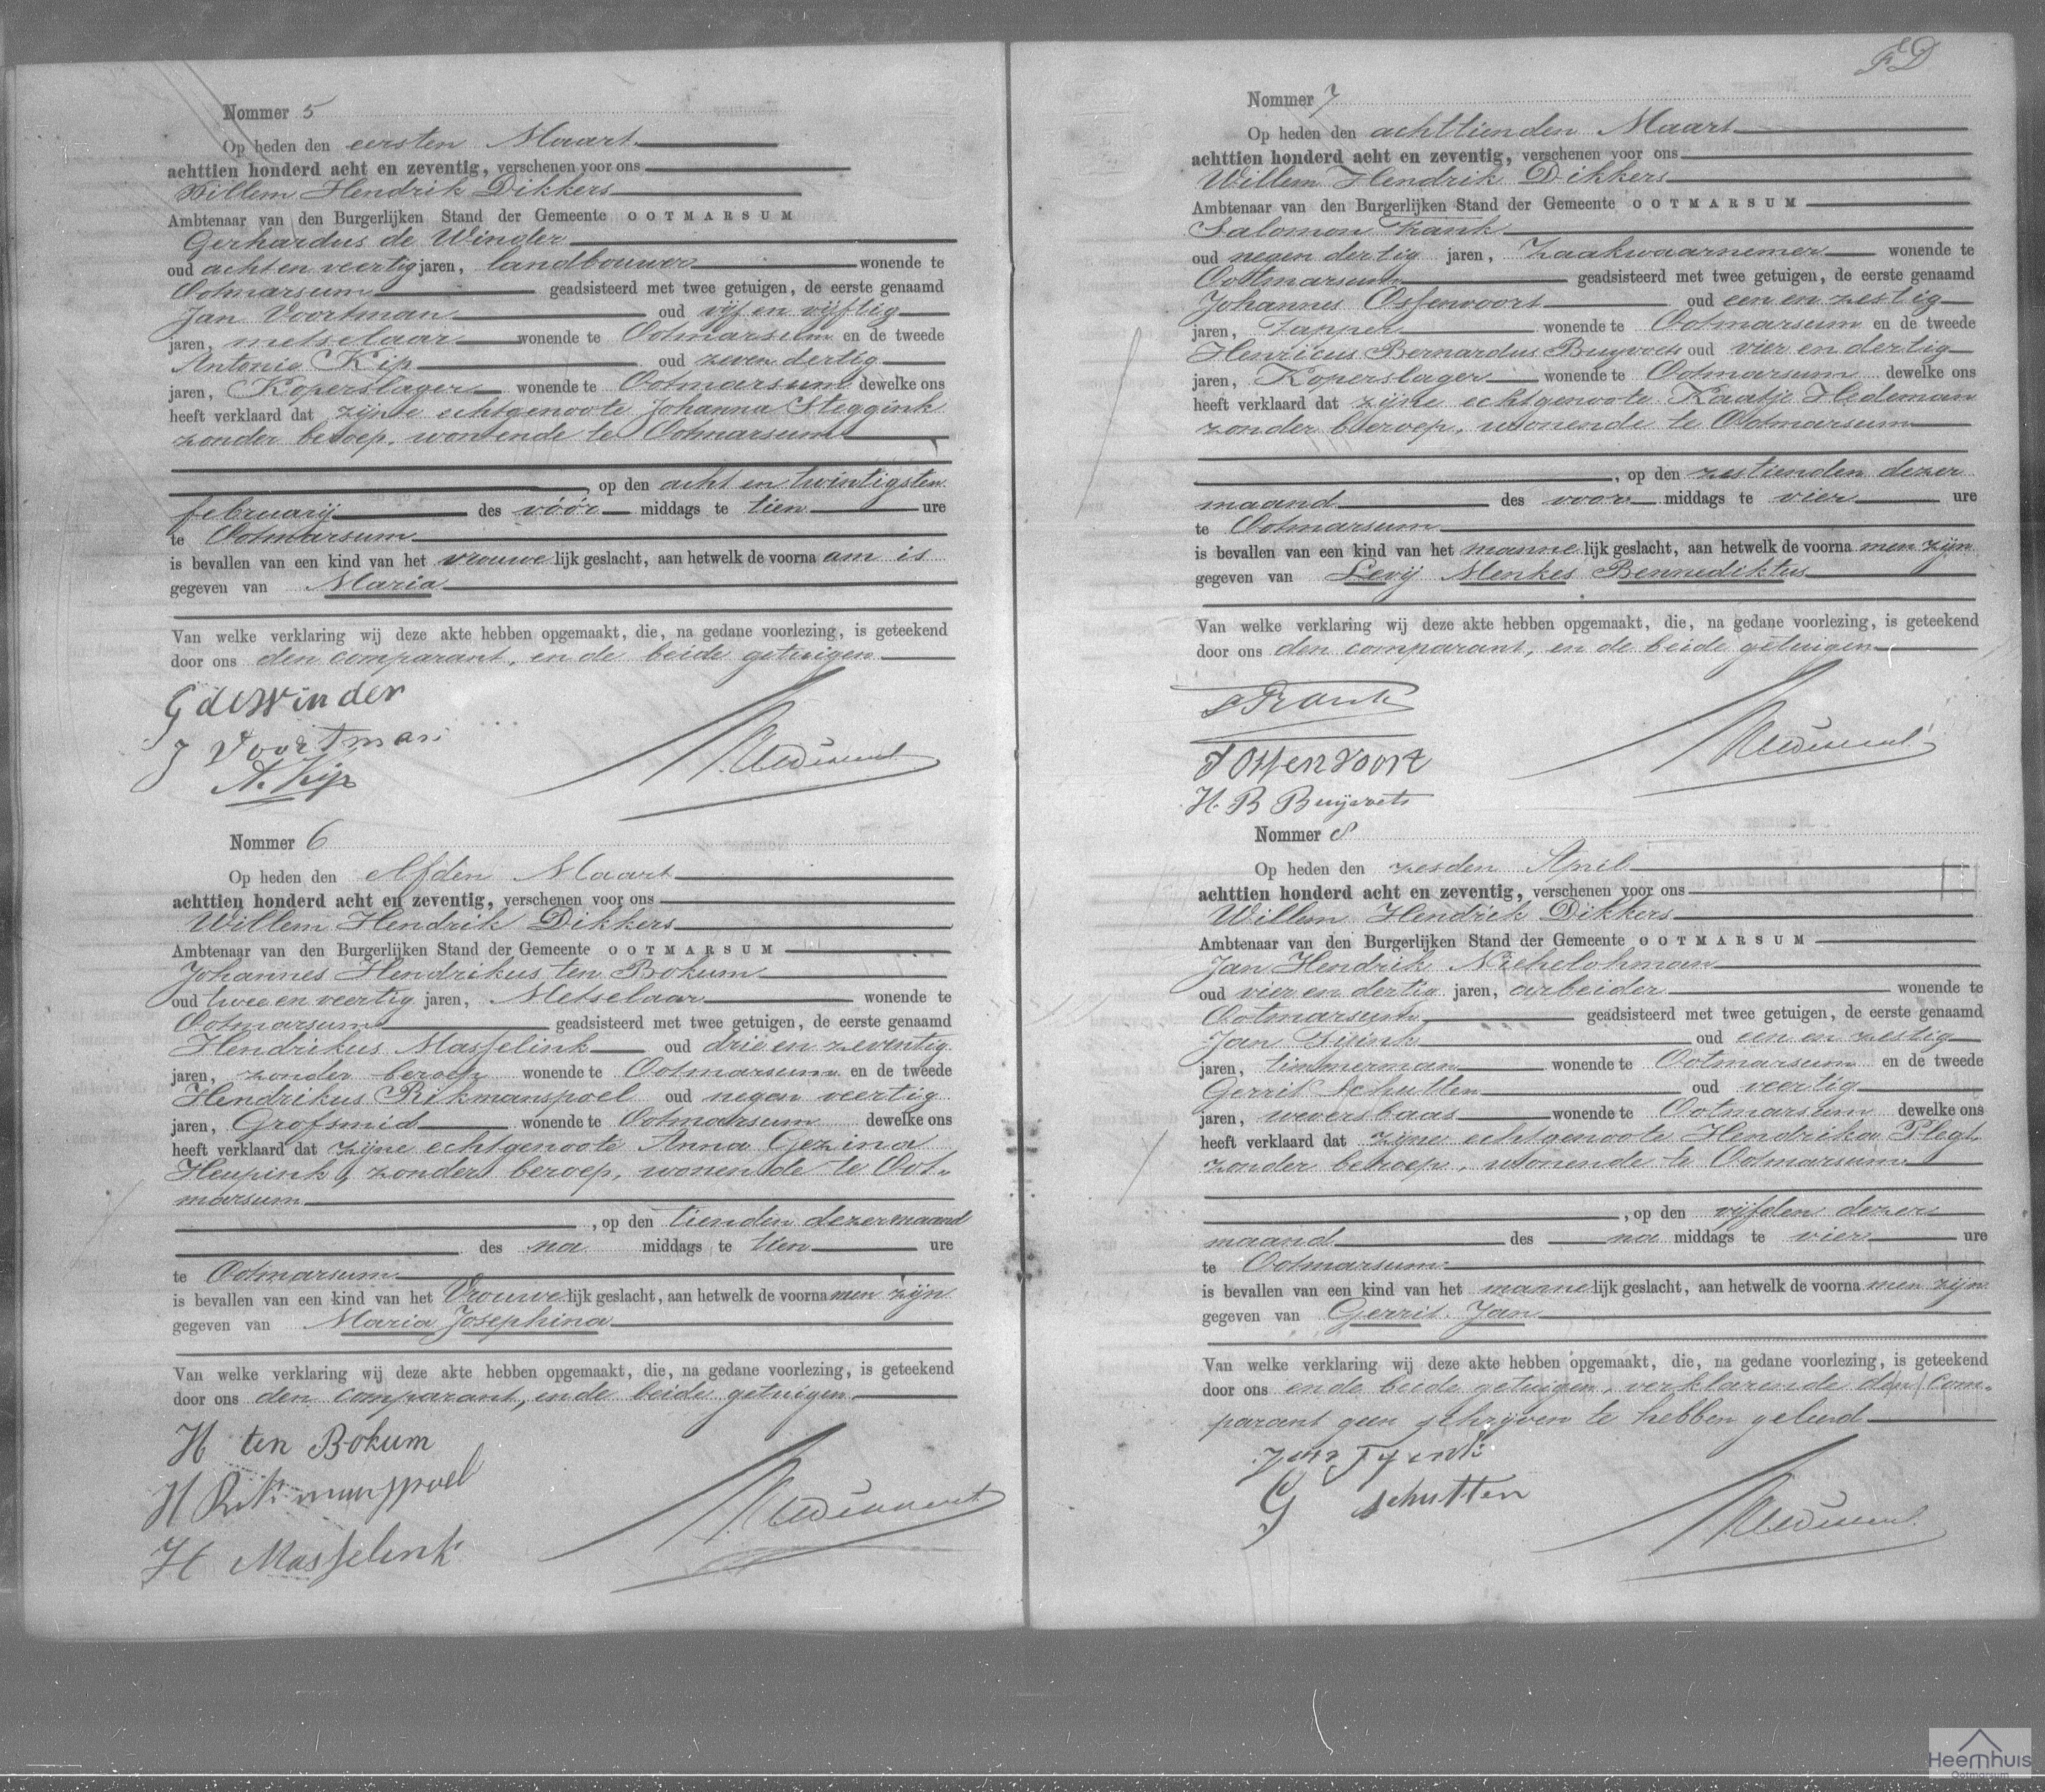 Nommer 5
Op heden den eersten Maart
achttien honderd acht en zeventig, verschenen voor ons
Willem Hendrik Dikkers
Ambtenaar van den Burgerlijken Stand der Gemeente OOTMARSUM
Gerhardus de Winder
oud acht en veertig jaren, landbouwer wonende te
Ootmarsum geadsisteerd met twee getuigen, de eerste genaamd
Jan Voortman oud vijf en vijftig
jaren, metselaar wonende te Ootmarsum en de tweede
Antonie Kip oud zeven dertig
jaren, Koperslager wonende te Ootmarsum dewelke ons
heeft verklaard dat zijne echtgenoote Johanna Steggink
zonder beroep, wonende te Ootmarsum
, op den acht en twintigsten
februarij des vóór middags te tien ure
te Ootmarsum
is bevallen van een kind van het vrouwelijk geslacht, aan hetwelk de voornaam is
gegeven van Maria
Van welke verklaring wij deze akte hebben opgemaakt, die, na gedane voorlezing, is geteekend
door ons den comparant, en de beide getuigen
G de Winder
J Voortman
A. Kip
Nommer 6
Op heden den elfden Maart
achttien honderd acht en zeventig, verschenen voor ons
Willem Hendrik Dikkers
Ambtenaar van den Burgerlijken Stand der Gemeente OOTMARSUM
Johannes Hendrikus ten Bokum
oud twee en veertig jaren, Metselaar wonende te
Ootmarsum geadsisteerd met twee getuigen, de eerste genaamd
Hendrikus Masselink oud drie en zeventig
jaren, zonder beroep wonende te Ootmarsum en de tweede
Hendrikus Rikmanspoel oud negen veertig
jaren, Grofsmid wonende te Ootmarsum dewelke ons
heeft verklaard dat zijne echtgenoote Anna Gezina
Heupink, zonder beroep, wonende te Oot-
marsum
, op den tienden dezer maand
des na middags te tien ure
te Ootmarsum
is bevallen van een kind van het Vrouwelijk geslacht, aan hetwelk de voornamen zijn
gegeven van Maria Josephina
Van welke verklaring wij deze akte hebben opgemaakt, die, na gedane voorlezing, is geteekend
door ons den comparant, en de beide getuigen
H ten Bokum
H Rikmanspoel
H Masselink
FD
Nommer 7
Op heden den achttienden Maart
achttien honderd acht en zeventig, verschenen voor ons
Willem Hendrik Dikkers
Ambtenaar van den Burgerlijken Stand der Gemeente OOTMARSUM
Salomon Frank
oud negen dertig jaren, Zaakwaarnemer wonende te
Ootmarsum geadsisteerd met twee getuigen, de eerste genaamd
Johannes Ossenvoort oud een en zestig
jaren, Tapper wonende te Ootmarsum en de tweede
Henricus Bernardus Buijvoets oud vier en dertig
jaren, Koperslager wonende te Ootmarsum dewelke ons
heeft verklaard dat zijne echtgenoote Kaatje Hedeman
zonder beroep, wonende te Ootmarsum
, op den zestienden dezer
maand des voor middags te vier ure
te Ootmarsum
is bevallen van een kind van het mannelijk geslacht, aan hetwelk de voornamen zijn
gegeven van Levij Menkes Bennediktus
Van welke verklaring wij deze akte hebben opgemaakt, die, na gedane voorlezing, is geteekend
door ons den comparant, en de beide getuigen
S Frank
J Ossenvoort
H. B Buijvoets
Nommer 8
Op heden den zesden April
achttien honderd acht en zeventig, verschenen voor ons
Willem Hendrik Dikkers
Ambtenaar van den Burgerlijken Stand der Gemeente OOTMARSUM
Jan Hendrik Nichelohman
oud vier en dertig jaren, arbeider wonende te
Ootmarsum geadsisteerd met twee getuigen, de eerste genaamd
Jan Tijink oud een en zestig
jaren, timmerman wonende te Ootmarsum en de tweede
Gerrit Schutten oud veertig
jaren, weversbaas wonende te Ootmarsum dewelke ons
heeft verklaard dat zijne echtgenoote Hendrika Plegt,
zonder beroep, wonende te Ootmarsum
, op den vijfden dezer
maand des na middags te vier ure
te Ootmarsum
is bevallen van een kind van het mannelijk geslacht, aan hetwelk de voornamen zijn
gegeven van Gerrit Jan
Van welke verklaring wij deze akte hebben opgemaakt, die, na gedane voorlezing, is geteekend
door ons en de beide getuigen, verklarende den com-
parant geen schrijven te hebben geleerd
Jan Tyink
G Schutten
Heemhuis
Ootmarsum